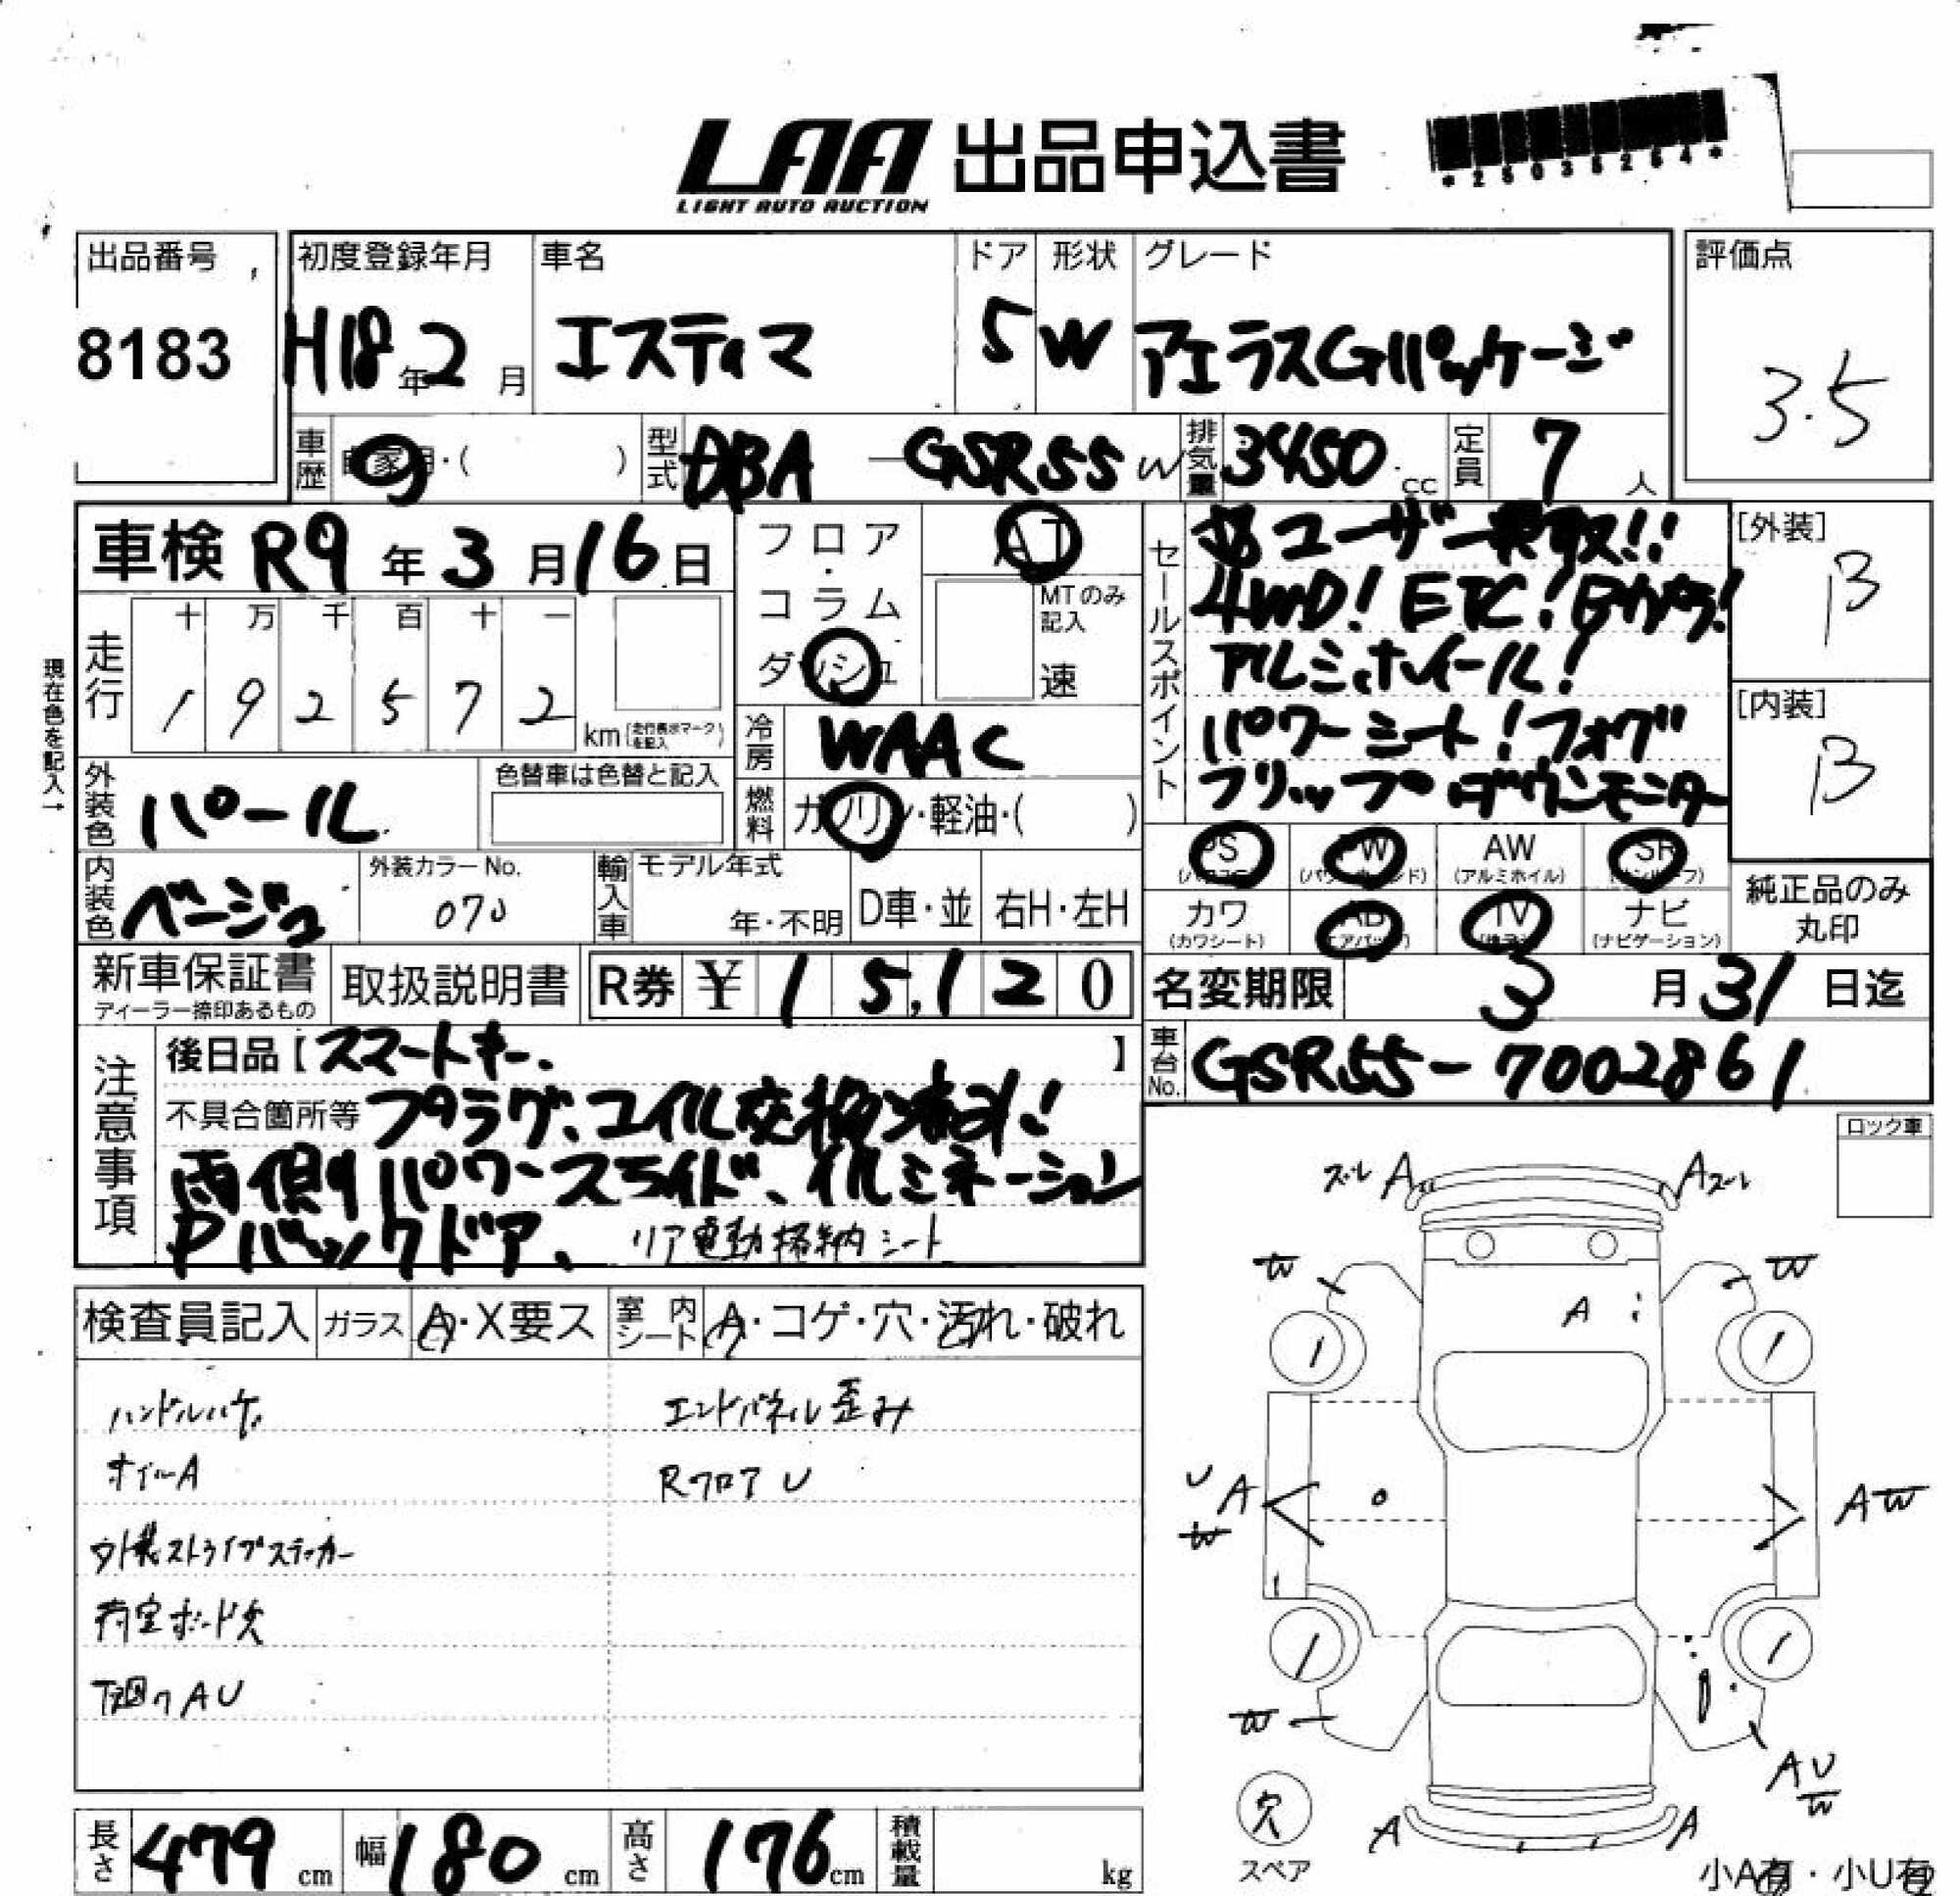 LAA 出品申込書
LIGHT AUTO AUCTION
*25035254*
出品番号
8183
初度登録年月
H18年2月
車名
エスティマ
ドア
5
形状
W
グレード
アエラスGパッケージ
評価点
3.5
車歴
自家用・( )
型式
DBA-GSR55W
排気量
3450cc
定員
7人
車検 R9年3月16日
走行
十 万 千 百 十 一
1 9 2 5 7 2
km(走行表示マークを記入)
現在色を記入→
フロア・コラム
ダッシュ
AT
MTのみ記入
速
冷房
WAAC
燃料
ガソリン・軽油・( )
セールスポイント
ユーザー買取!!
4WD! ETC! Bカメラ!
アルミホイール!
パワーシート!フォグ
フリップダウンモニター
[外装]
B
[内装]
B
外装色
パール
色替車は色替と記入
内装色
ベージュ
外装カラーNo.
070
輸入車
モデル年式
年・不明
D車・並
右H・左H
PS
PW
AW
(アルミホイル)
SR
カワ
(カワシート)
AB
(エアバッグ)
TV
ナビ
(ナビゲーション)
純正品のみ丸印
新車保証書
ディーラー捺印あるもの
取扱説明書
R券 ¥15,120
名変期限 3月31日迄
車台No.
GSR55-7002861
注意事項
後日品【スマートキー、】
不具合箇所等 プラグ、コイル交換済み!
両側パワースライド、イルミネーション
Pバックドア、リア電動格納シート
検査員記入
ガラス A・X要ス
室内シート A・コゲ・穴・汚れ・破れ
ハンドルハゲ
エンドパネル歪み
オイルA
RフロアU
外装ストライプステッカー
荷室ボード欠
下廻りAU
ロック車
ズレ A
A ズレ
W
W
A
U A
W
A W
W
A U
W
A
A
欠
スペア
小A有・小U有
長さ 479cm
幅 180cm
高さ 176cm
積載量 kg